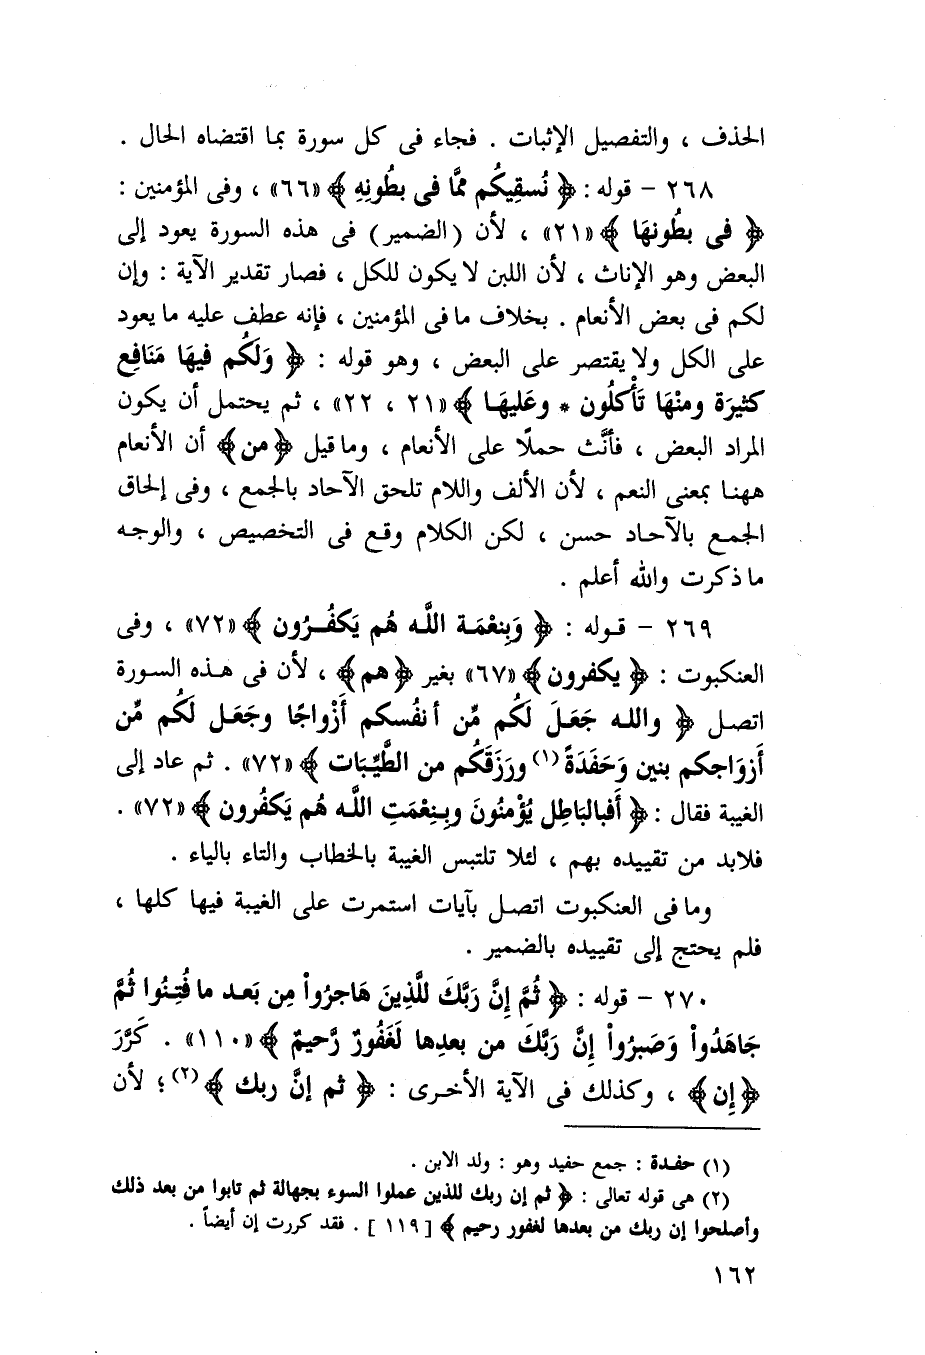 الحذف ، والتفصيل الإثبات . فجاء فى كل سورة بما اقتضاه الحال .
٢٦٨ – قوله : ﴿ نُسقِيكُم ممَّا فى بطُونِهِ ﴾ «٦٦» ، وفى المؤمنين :
﴿ فى بطُونهَا ﴾ «٢١» ، لأن (الضمير) فى هذه السورة يعود إلى
البعض وهو الإناث ، لأن اللبن لا يكون للكل ، فصار تقدير الآية : وإن
لكم فى بعض الأنعام . بخلاف ما فى المؤمنين ، فإنه عطف عليه ما يعود
على الكل ولا يقتصر على البعض ، وهو قوله : ﴿ وَلَكُم فيهَا مَنَافِع
كثيرَة ومنْهَا تَأْكلُون * وعَليهَا ﴾ «٢١ ، ٢٢» ، ثم يحتمل أن يكون
المراد البعض ، فأنَّث حملًا على الأنعام ، وما قيل ﴿من﴾ أن الأنعام
ههنا بمعنى النعم ، لأن الألف واللام تلحق الآحاد بالجمع ، وفى إلحاق
الجمع بالآحاد حسن ، لكن الكلام وقع فى التخصيص ، والوجه
ما ذكرت والله أعلم .
٢٦٩ – قوله : ﴿ وَبِنعْمَة اللَّه هُم يَكفُرُون ﴾ «٧٢» ، وفى
العنكبوت : ﴿ يكفرون ﴾ «٦٧» بغير ﴿هم﴾ ، لأن فى هذه السورة
اتصل ﴿ والله جَعَلَ لَكُم مِّن أنفُسكم أَزْواجًا وجَعَل لَكُم مِّن
أَزوَاجكم بنين وَحَفَدَةً (١) ورَزَقَكُم من الطَّيِّبَات ﴾ «٧٢» . ثم عاد إلى
الغيبة فقال : ﴿ أَفبالبَاطِل يُؤْمنُونَ وبِنِعْمَتِ اللَّه هُم يَكفُرون ﴾ «٧٢» .
فلابد من تقييده بهم ، لئلا تلتبس الغيبة بالخطاب والتاء بالياء .
وما فى العنكبوت اتصل بآيات استمرت على الغيبة فيها كلها ،
فلم يحتج إلى تقييده بالضمير .
٢٧٠ – قوله : ﴿ ثُمَّ إِنَّ رَبَّكَ للَّذِينَ هَاجرُواْ مِن بَعد ما فُتِنُوا ثُمَّ
جَاهَدُواْ وَصَبرُواْ إِنَّ رَبَّكَ من بعدِها لَغَفُورٌ رَّحيمٌ ﴾ «١١٠» . كَرَّرَ
﴿إن﴾ ، وكذلك فى الآية الأخرى : ﴿ ثم إنَّ ربك ﴾ (٢) ؛ لأن
(١) حفدة : جمع حفيد وهو : ولد الابن .
(٢) هى قوله تعالى : ﴿ ثم إن ربك للذين عملوا السوء بجهالة ثم تابوا من بعد ذلك
وأصلحوا إن ربك من بعدها لغفور رحيم ﴾ [ ١١٩ ] . فقد كررت إن أيضاً .
١٦٢